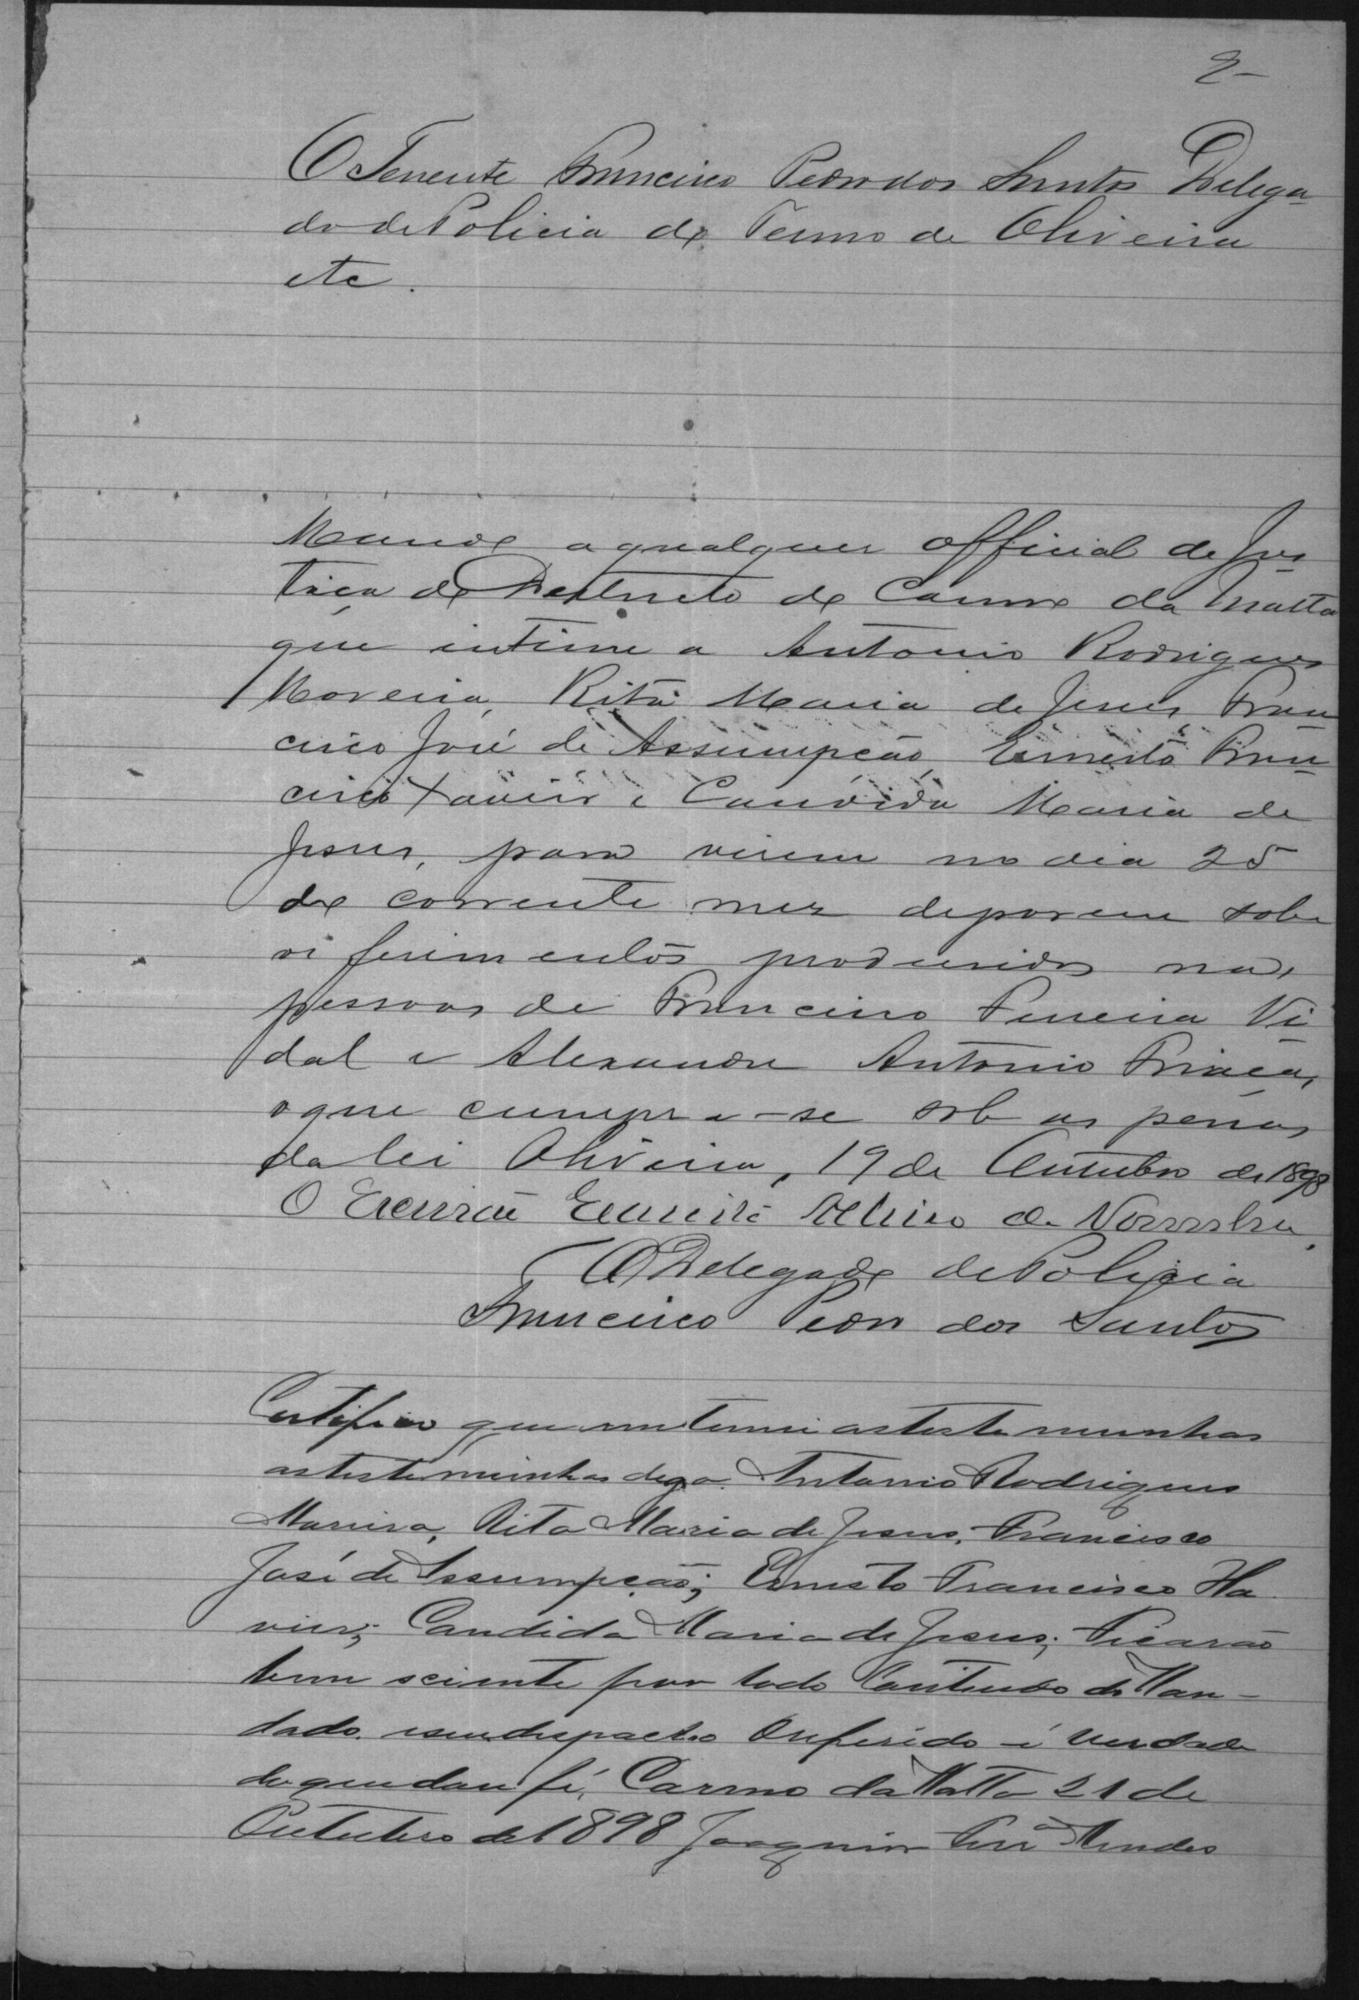 2-
O Tenente Francisco Pedro dos Santos Delega-
do de Policia do Termo de Oliveira
etc.
Mando a qualquer official de Jus-
tiça do Destricto do Carmo da Matta
que intime a Antonio Rodrigues
Moreira, Rita Maria de Jesus, Fran-
cisco José de Assumpção, Ernesto Fran-
cisco Xavier e Candida Maria de
Jesus, para virem no dia 25
do corrente mez deporem sobre
os ferimentos produsidos nas
pessoas de Francisco Ferreira Vi-
dal e Alexandre Antonio
o que cumpra-se sob as penas
da lei Oliveira, 19 de Outubro de 1898
O Escrivão
O Delegado de Policia
Francisco Pedro dos Santos
Certifico que intimei as testemunhas
as testemunhas digo. Antonio Rodrigues
Moreira, Rita Maria de Jesus, Francisco
José de Assumpção; Ernesto Francisco Ha
vier; Candida Maria de Jesus; Ficarão
bem sciente por todo Conteudo do Man-
dado. e seu despacho é verdade
do que dou fé, Carmo da Matta 21 de
Outubro de 1898 Joaquim Mendes